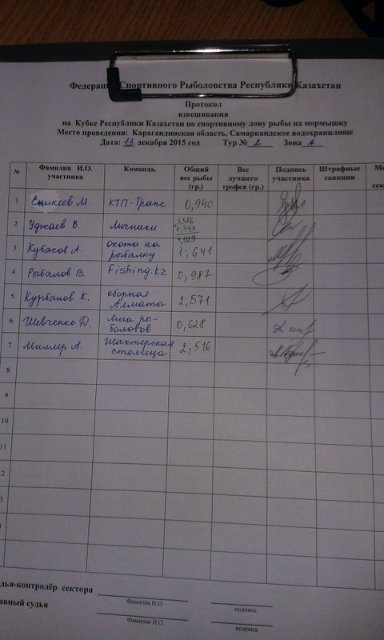 Федерация Спортивного Рыболовства Республики Казахстан
Протокол
взвешивания
на Кубке Республики Казахстан по спортивному лову рыбы на мормышку
Место проведения: Карагандинская область, Самаркандское водохранилище
Дата: 13 декабря 2015 год Тур № 2 Зона А
№ Фамилия И.О. участника Команда, Общий вес рыбы (гр.) Вес лучшего трофея (гр.) Подпись участника Штрафные санкции
1 М. КТП-Транс 0,940
2 В. Лунники 4,929
3 Кубасов А. охота на рыбалку 1,641
4 Рыбалов В. Fishing.kz 0,987
5 Курбанов К. сборная Алматы 2,571
6 Шевченко Д. лига рыболовов 0,628
7 Миллер А. Шахтерская столица 2,516
8
9
10
11
2
3
4
5
дья-контролёр сектора
Фамилия И.О. подпись
авный судья
Фамилия И.О. подпись